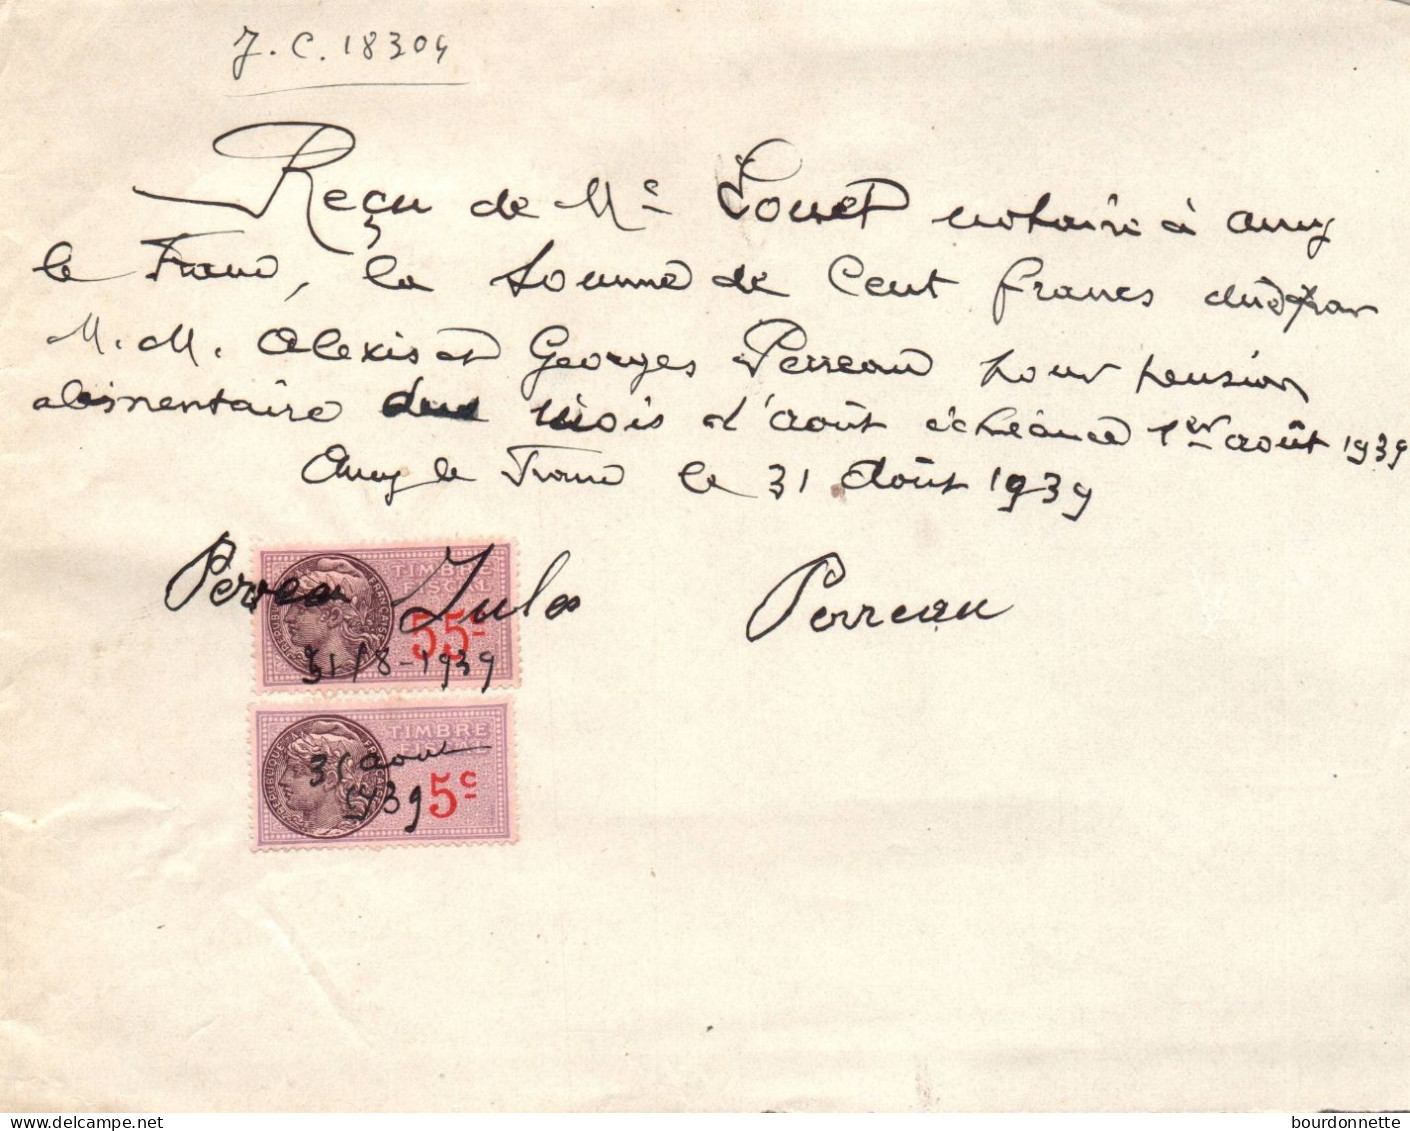 J.C. 18304
Reçu de Me Louet notaire à Cuvy
le Franc, la somme de Cent francs due par
M.M. Alexis et Georges Perreau pour pension
alimentaire du mois d'août échéance 1er août 1939
le Franc le 31 Août 1939
Perreau Jules Perreau
TIMBRE
FISCAL
RÉPUBLIQUE FRANÇAISE
55c
31/8-1939
TIMBRE
FISCAL
RÉPUBLIQUE FRANÇAISE
31 aout
1939
5c
bourdonnette